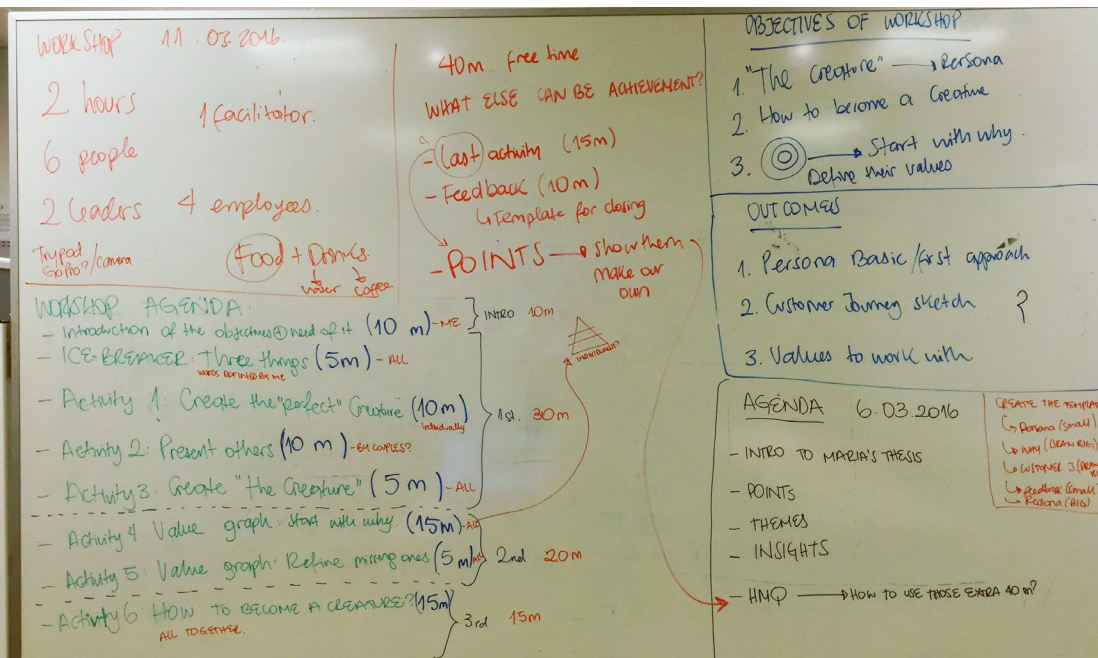 WORKSHOP 11.03.2016.
2 hours
1 facilitator.
6 people
2 leaders 4 employees.
Trypod
GoPro?/camera
Food + Drinks.
water coffee
40m free time
WHAT ELSE CAN BE ACHIEVEMENT?
- Last activity (15m)
- Feedback (10m)
↳ Template for closing
- POINTS → show them
make our
own
WORKSHOP AGENDA:
- Introduction of the objectives need of it (10 m) - ME
INTRO 10m
- ICE-BREAKER: Three things (5m) - ALL
WORDS DEFINED BY ME
- Activity 1: Create the "perfect" Creature (10m)
Individually
1st. 30m
- Activity 2: Present others (10 m) - BY COUPLES?
- Activity 3: Create "the Creature" (5m) - ALL
- Activity 4: Value graph: start with why (15m) - ALL
INDIVIDUALLY?
- Activity 5: Value graph: Refine missing ones (5m)
2nd 20m
- Activity 6 HOW TO BECOME A CREATURE? (15m)
ALL TOGETHER.
3rd 15m
OBJECTIVES OF WORKSHOP
1. "The Creature" → Persona
2. How to become a Creature
3. → Start with why.
Define their values
OUTCOMES
1. Persona Basic/first approach
2. Customer Journey sketch ?
3. Values to work with
AGENDA 6.03.2016
- INTRO TO MARIA'S THESIS
- POINTS
- THEMES
- INSIGHTS
- HMQ → HOW TO USE THOSE EXTRA 40m?
CREATE THE TEMPLAT
↳ Persona (small)
↳ WHY (DRAW BIG)
↳ CUSTOMER J (DRAW
↳ Feedback (small)
↳ Persona (BIG)